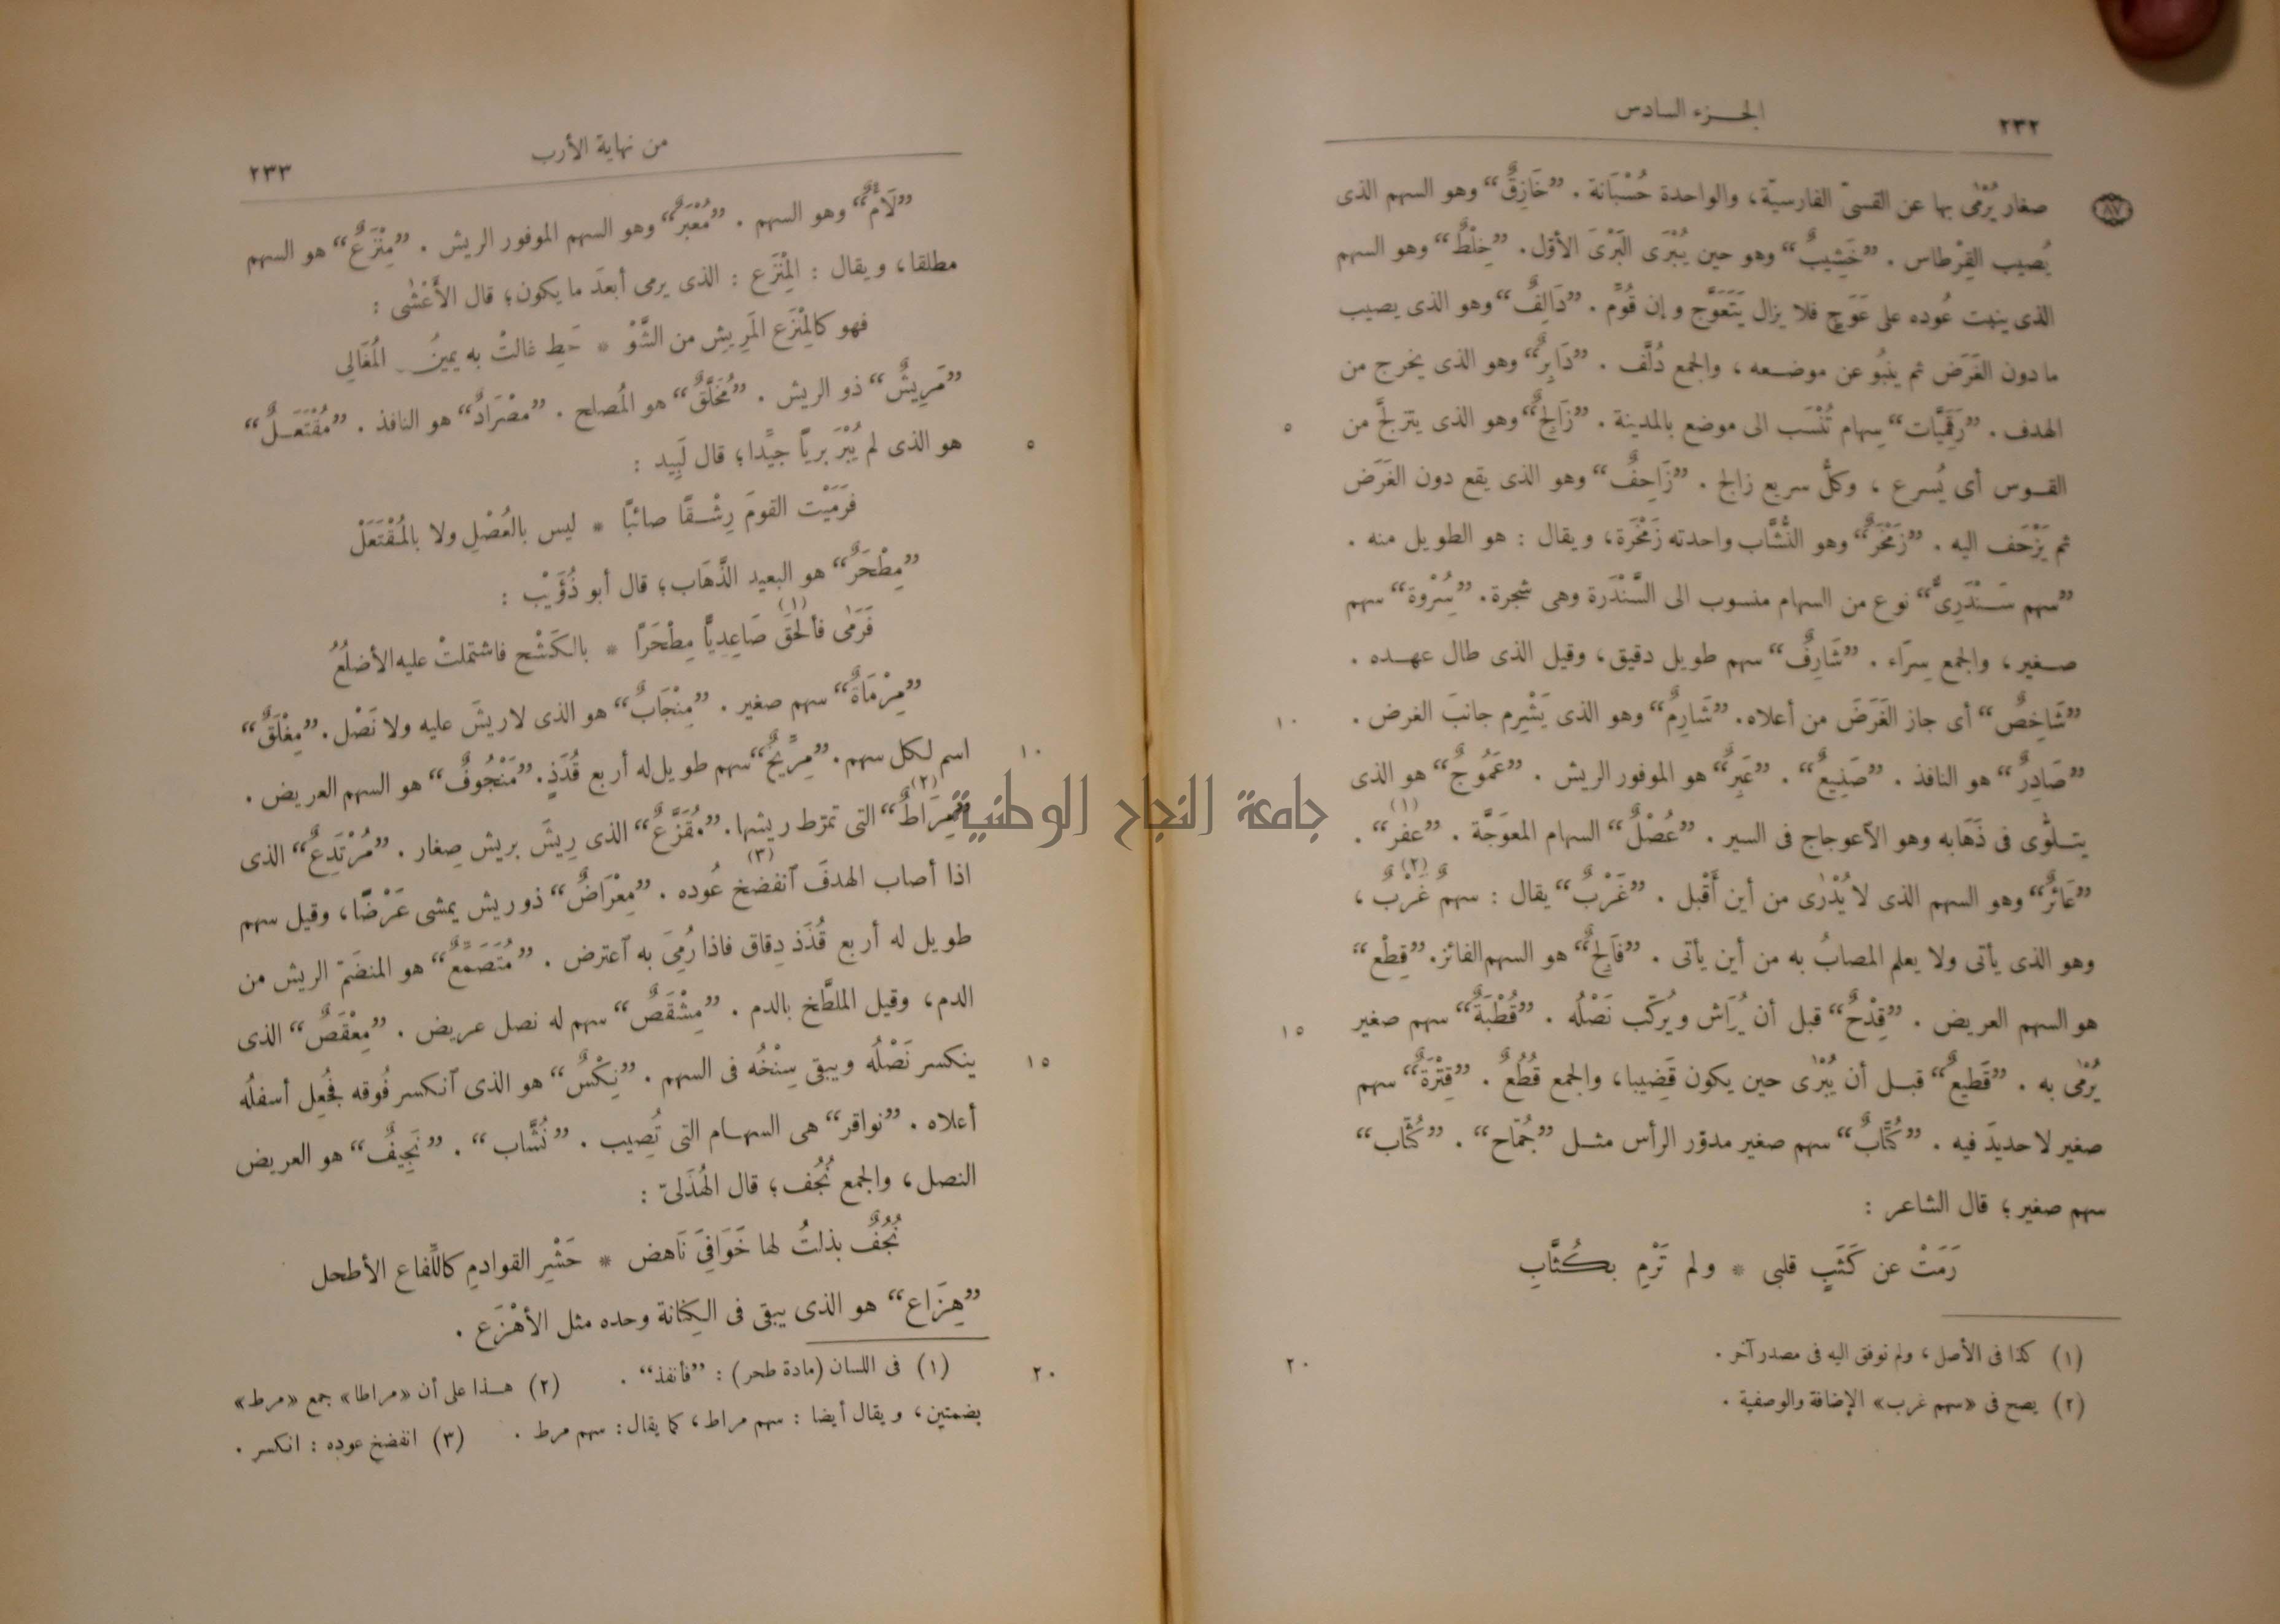 ٢٣٢
الجـزء السادس
٨٧
صغار يُرْمَى بها عن القسىّ الفارسيّة، والواحدة حُسْبَانة . ”خَازِقٌ“ وهو السهم الذى
يُصيب القِرْطاس . ”خَشِيبٌ“ وهو حين يُبْرَى البَرْىَ الأوّل. ”خِلْطٌ“ وهو السهم
الذى ينبت عُوده على عَوَجٍ فلا يزال يَتَعَوَّج وإن قُوِّمَ . ”دَالِفٌ“ وهو الذى يصيب
ما دون الغَرَض ثم ينبُو عن موضـعه ، والجمع دُلَّف . ”دَابِرٌ“ وهو الذى يخرج من
الهدف . ”رَقَمِيَّات“ سِهام تُنْسَب الى موضع بالمدينة . ”زَالِجٌ“ وهو الذى يتزلجَّ من
٥
القـوس أى يُسرع ، وكلُّ سريع زالج . ”زَاحِفٌ“ وهو الذى يقع دون الغَرَض
ثم يَزْحَف اليه . ”زَمْخَرٌ“ وهو النُّشَّاب واحدته زَمْخَرة، ويقال : هو الطويل منه .
”سهم سَـنْدَرِىٌّ“ نوع من السهام منسوب الى السَّنْدَرة وهى شجرة. ”سُِرْوة“ سهم
صـغير، والجمع سِرَاء . ”شَارِفٌ“ سهم طويل دقيق، وقيل الذى طال عهـده .
”شَاخِصٌ“ أى جاز الغَرَضَ من أعلاه. ”شَارِمٌ“ وهو الذى يَشْرِم جانبَ الغرض .
١٠
”صَادِرٌ“ هو النافذ . ”صَنِيعٌ“ . ”عَبِرٌ“ هو الموفور الريش . ”عَمُوجٌ“ هو الذى
يتـلوَّى فى ذَهَابه وهو الآعوجاج فى السير . ”عُصْلٌ“ السهام المعوَجَّة . ”عفر“(١) .
”عَائرٌ“ وهو السهم الذى لا يُدْرَى من أين أَقْبل . ”غَرْبٌ“ يقال : سهمٌ غَرْبٌ(٢) ،
وهو الذى يأتى ولا يعلم المصابُ به من أين يأتى . ”فَالِجٌ“ هو السهم الفائز. ”قِطْع“
هو السهم العريض . ”قِدْحٌ“ قبل أن يُرَاش ويُركّب نَصْلُه . ”قُطْبَةٌ“ سهم صغير
١٥
يُرْمَى به . ”قَطيعٌ“ قبـل أن يُبْرَى حين يكون قَضِيبا، والجمع قُطُعٌ . ”قِتْرَةٌ“ سهم
صغير لا حديدَ فيه . ”كُتَّابٌ“ سهم صغير مدوّر الرأس مثـل ”جُمّاح“ . ”كُثّاب“
سهم صغير؛ قال الشاعر :
رَمَتْ عن كَثَبٍ قلبى * ولم تَرْمِ بكُثَّابِ
(١) كذا فى الأصل، ولم نوفق اليه فى مصدر آخر .
٢٠
(٢) يصح فى «سهم غرب» الإضافة والوصفية .
من نهاية الأرب
٢٣٣
”لَأْمٌ“ وهو السهم . ”مُعْبَرٌ“ وهو السهم الموفور الريش . ”مِنْزَعٌ“ هو السهم
مطلقا، ويقال : المِنْزَع : الذى يرمى أبعدَ ما يكون؛ قال الأَعْشَى :
فهو كالمِنْزَع المَرِيشِ من الشَّوْ * حَطِ غالتْ به يمينُ المُغَالِى
”مَرِيشٌ“ ذو الريش . ”مُخَلَّقٌ“ هو المُصلح . ”مصْرَادٌ“ هو النافذ . ”مُقْتَعَـلٌ“
هو الذى لم يُبْرَ بريًا جيّدا؛ قال لَبِيد :
٥
فرَمَيْت القومَ رِشْـقًا صائبًا * ليس بالعُصْلِ ولا بالمُقْتَعَلْ
”مِطْحَرٌ“ هو البعيد الذَّهَاب؛ قال أبو ذُؤَيْب :
فَرَمَى فألحَقَ(١) صَاعِدِيًّا مِطْحَرًا * بالكَشْحِ فاشتملتْ عليه الأضلُعُ
”مِرْمَاةٌ“ سهم صغير . ”مِنْجَابٌ“ هو الذى لا ريشَ عليه ولا نَصْل. ”مِغْلَقٌ“
اسم لكل سهم. ”مِرِّيخٌ“ سهم طويل له أربع قُذَذٍ. ”مَنْجُوفٌ“ هو السهم العريض .
١٠
”مِرَاطٌ“(٢) التى تمرّط ريشها. ”مُقَزَّعٌ“ الذى رِيشَ بريش صِغار . ”مُرْتَدِعٌ“ الذى
اذا أصاب الهدفَ آنفضخ(٣) عُوده . ”مِعْرَاضٌ“ ذو ريش يمشى عَرْضًا، وقيل سهم
طويل له أربع قُذَذ دِقاق فاذا رُمِىَ به آعترض . ”مُتَصَمِّعٌ“ هو المنضَمّ الريش من
الدم، وقيل الملطَّخ بالدم . ”مِشْقَصٌ“ سهم له نصل عريض . ”مِعْقَصٌ“ الذى
ينكسر نَصْلُه ويبقى سِنْخُه فى السهم . ”نِكْسٌ“ هو الذى آنكسر فُوقه فجُعِل أسفلُه
١٥
أعلاه . ”نواقر“ هى السهـام التى تُصِيب . ”نُشَّاب“ . ”نَجِيفٌ“ هو العريض
النصل، والجمع نُجُف؛ قال الهُذَلىّ :
نُجُفٌ بذلتُ لها خَوَافِىَ نَاهض * حَشْرِ القوادمِ كاللِّفاع الأطحل
”هِزَاع“ هو الذى يبقى فى الكِنانة وحده مثل الأهْزَع .
(١) فى اللسان (مادة طحر) : ”فأنفذ“ . (٢) هـذا على أن «مراطا» جمع «مرط»
٢٠
بضمتين، ويقال أيضا : سهم مراط، كما يقال : سهم مرط . (٣) انفضخ عوده : انكسر .
جامعة النجاح الوطنية